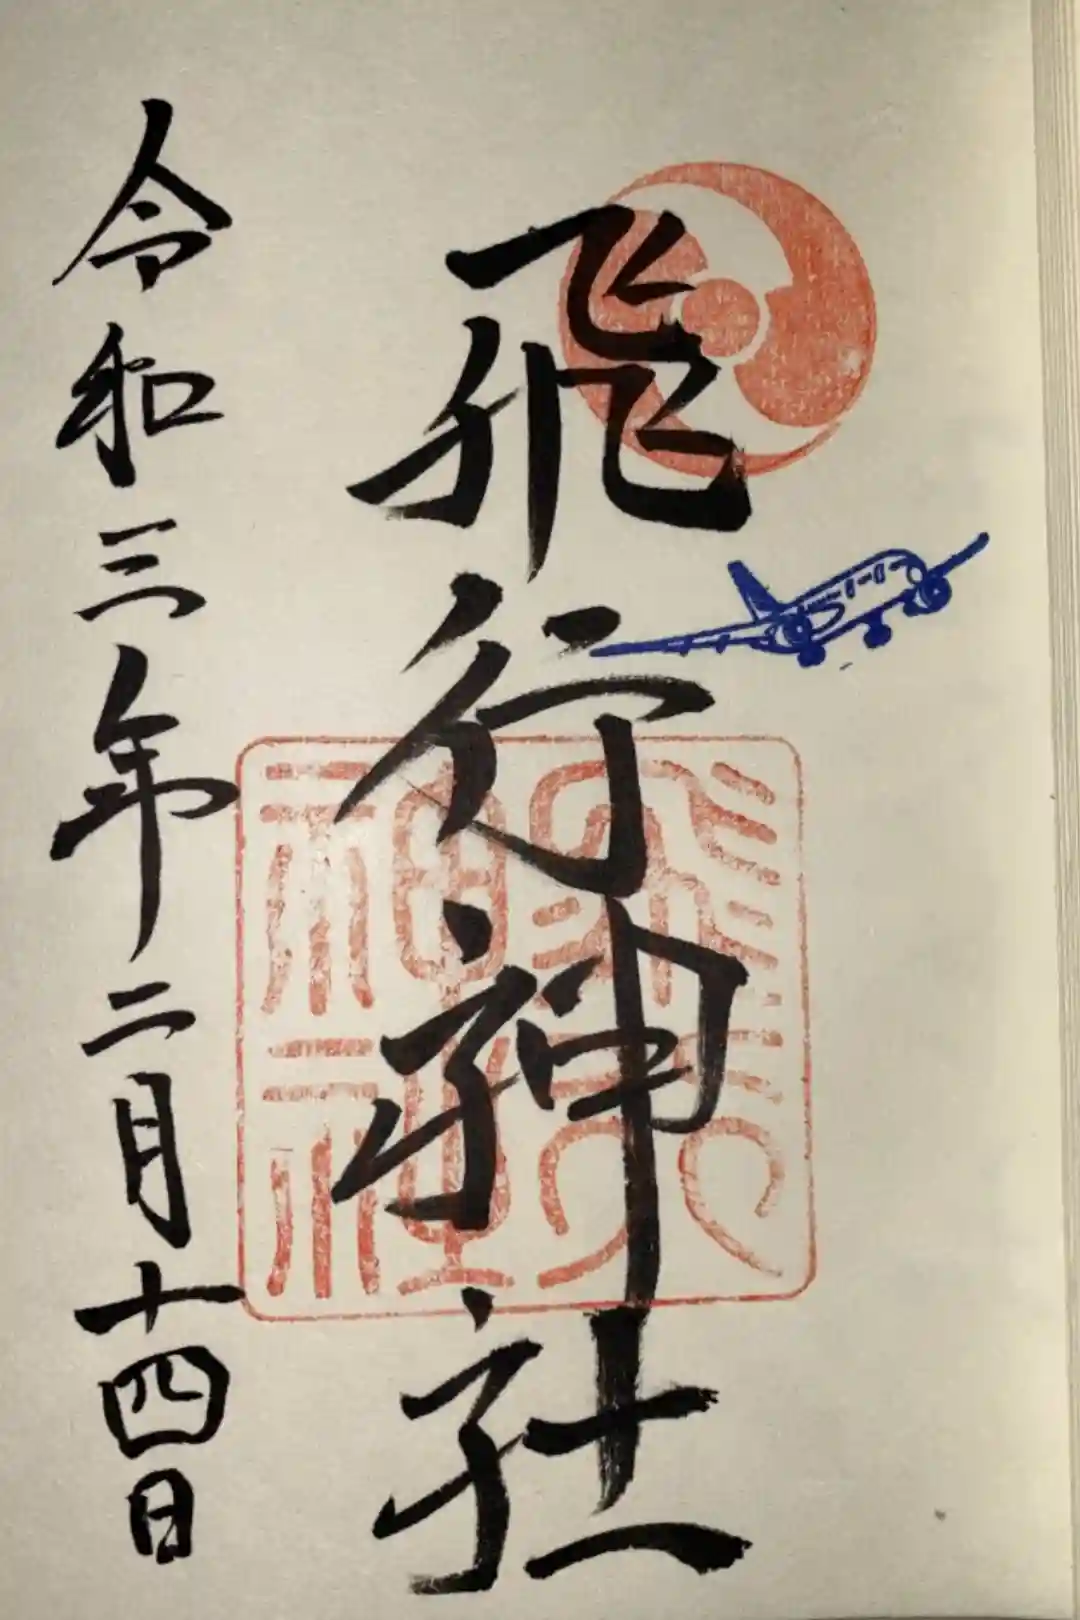 飛行神社
飛行神社
令和三年二月十四日